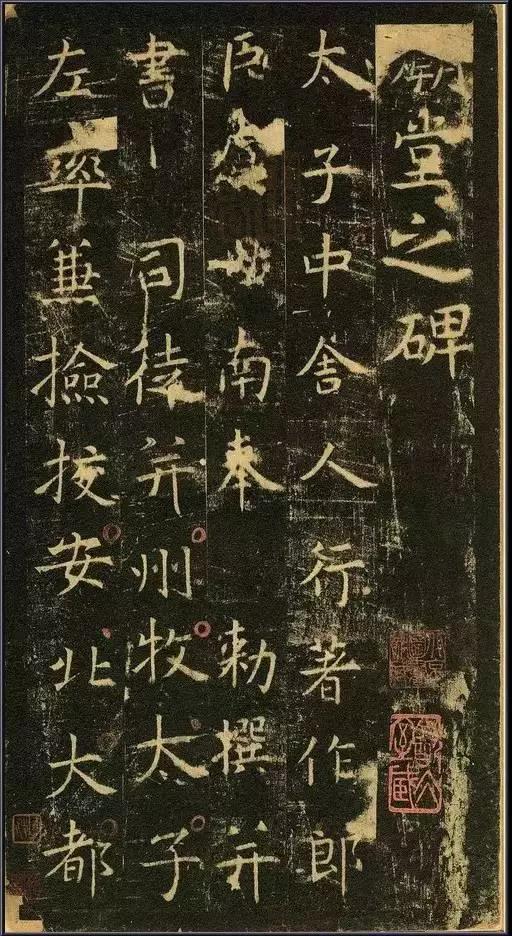 廟堂之碑
太子中舍人行著作郎
臣虞世南奉 勅撰并
書 司徒并州牧太子
左率兼撿挍安北大都